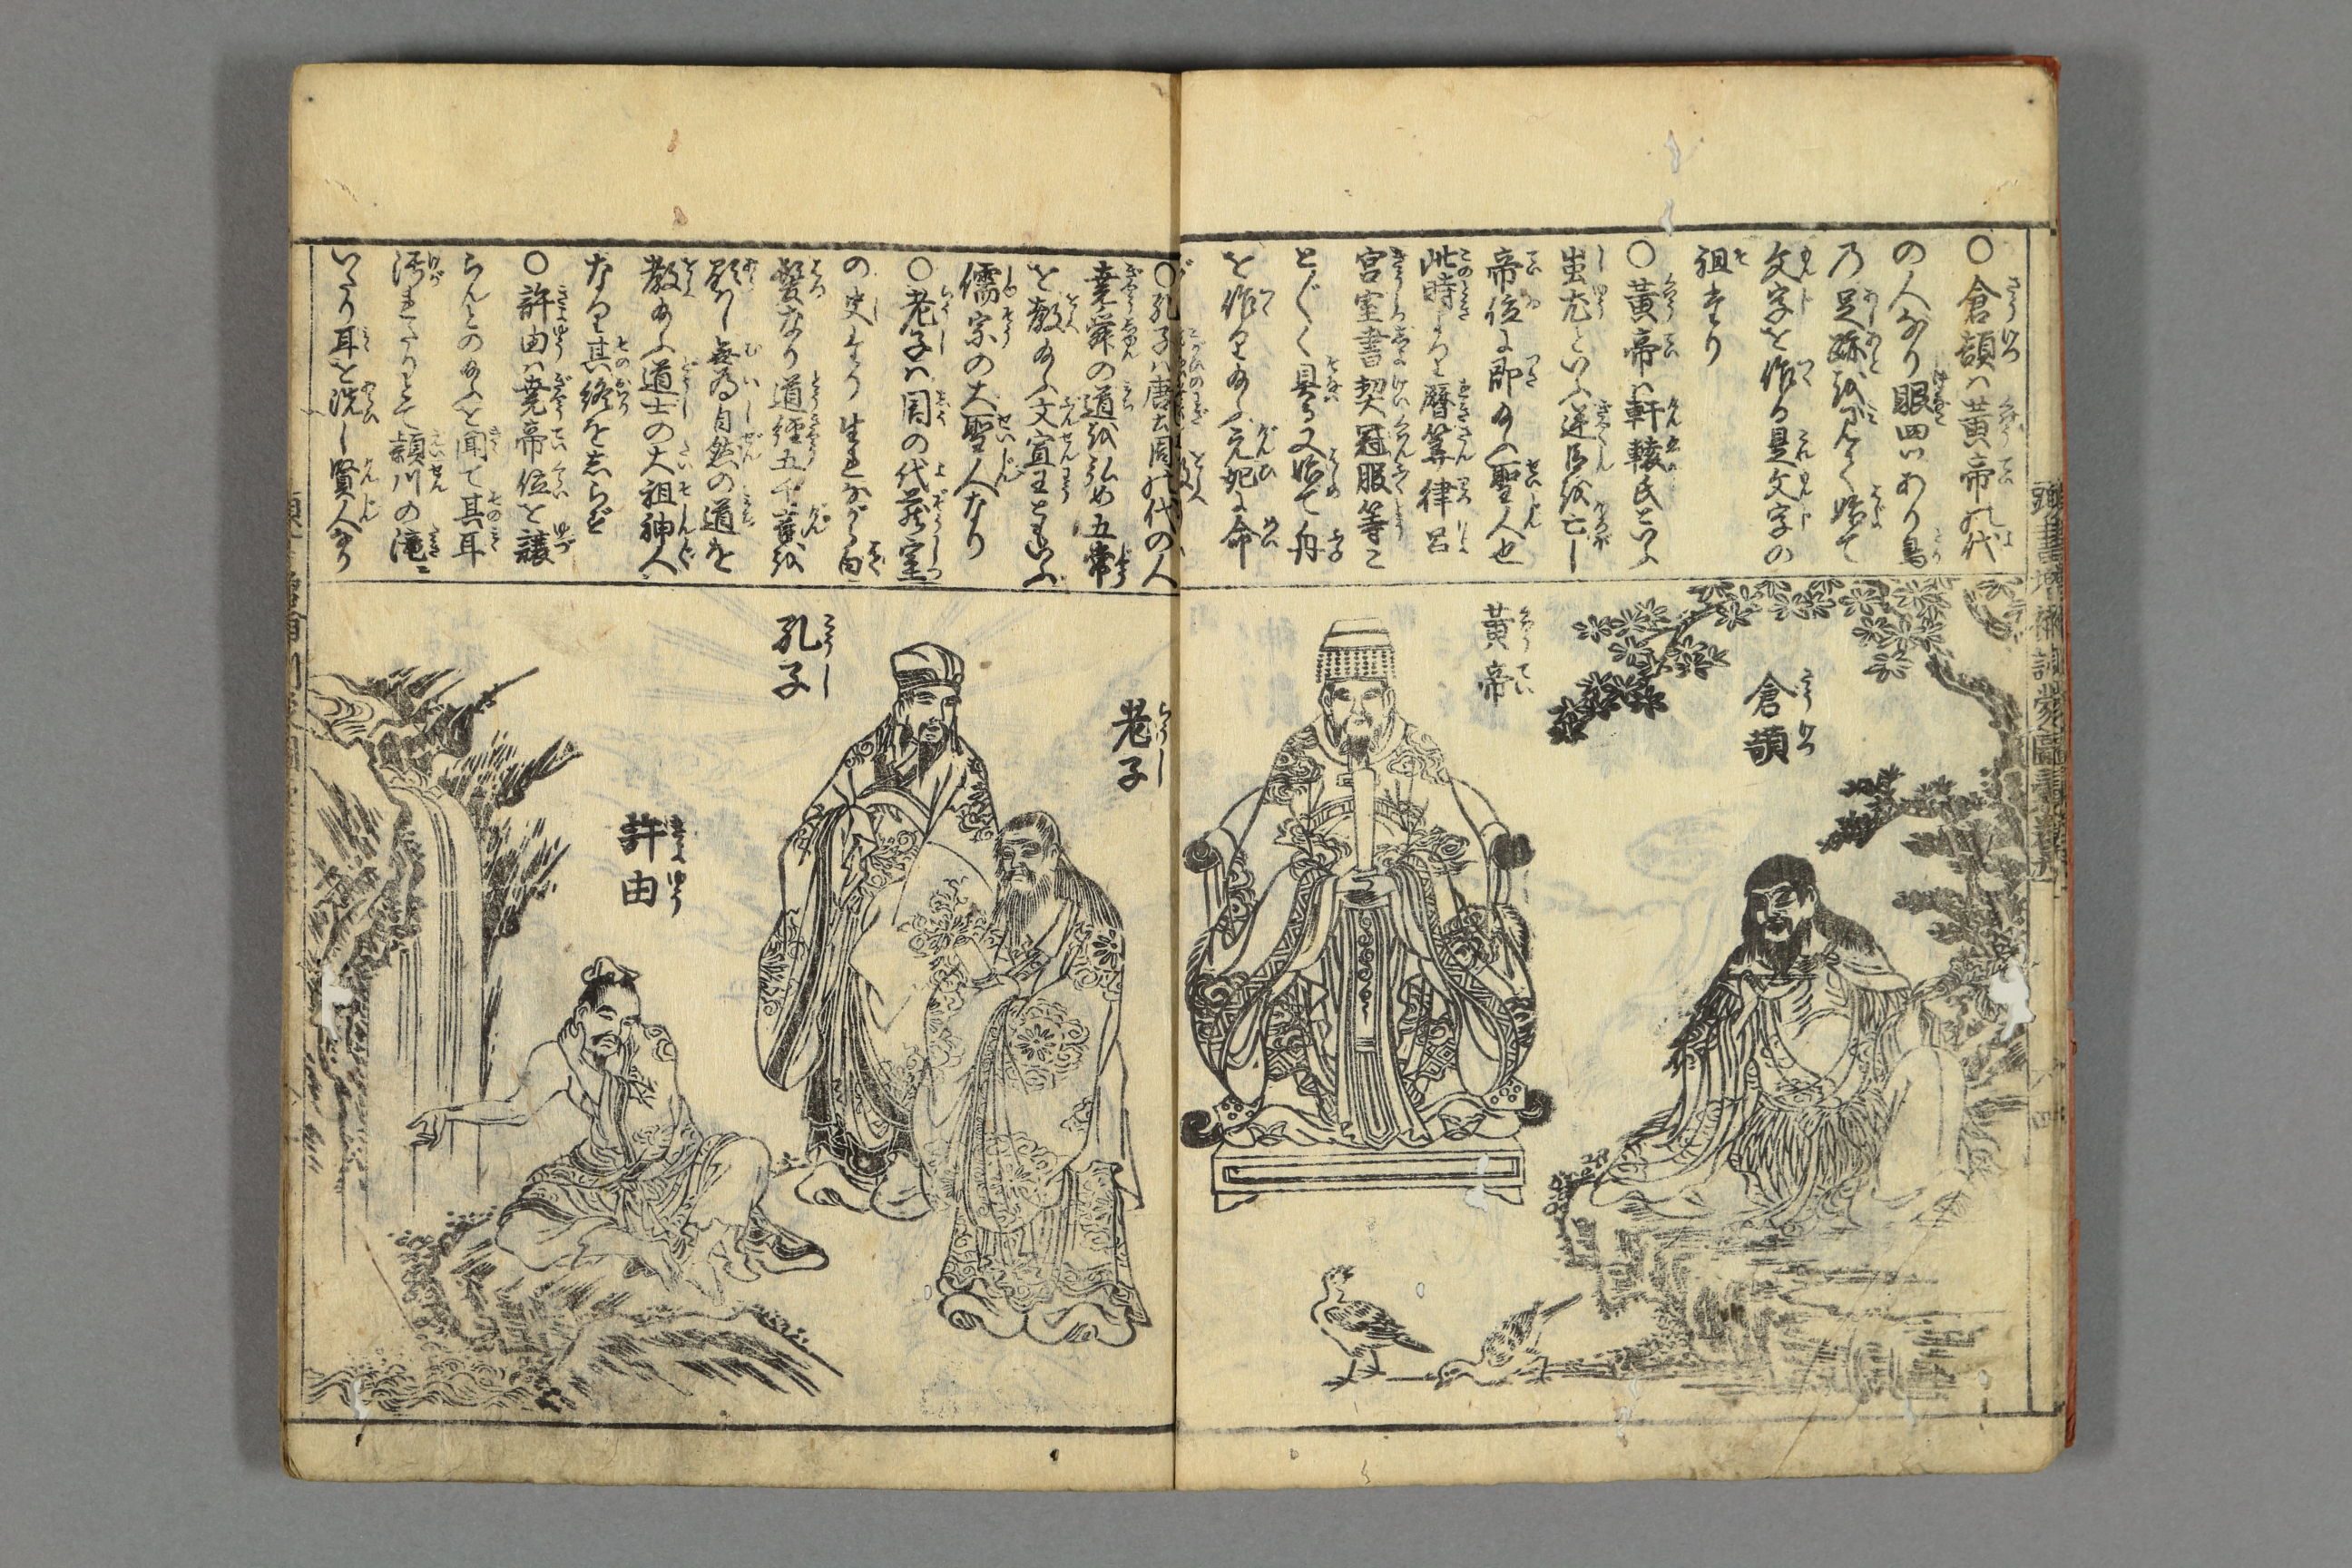 ○倉頡ハ黄帝の代
の人なり眼四いあり鳥
乃足跡をみて始て
文字を作る是文字の
祖なり
○黄帝ハ軒轅氏といふ
蚩尤といふ逆臣を亡し
帝位に即給ふ聖人也
此時より暦算律呂
宮室書契冠服等こ
とごとく具る又始て舟
を作り給ふ
倉頡
黄帝
○孔子ハ
堯舜の道を弘め五常
を教給ふ文宣王ともいふ
儒宗の大聖人なり
○老子ハ周の代蔵室
の史なり生れながら白
髪なり道経五千言を
顕ハし無為自然の道を
教給ふ道士の大祖神人
なり其終をしらず
○許由ハ堯帝位を譲
らんとのたまふを聞て其耳
汚れたりとて頴川の滝ニ
いたり耳を洗し賢人なり
老子
孔子
許由
頭書増補訓蒙図彙巻